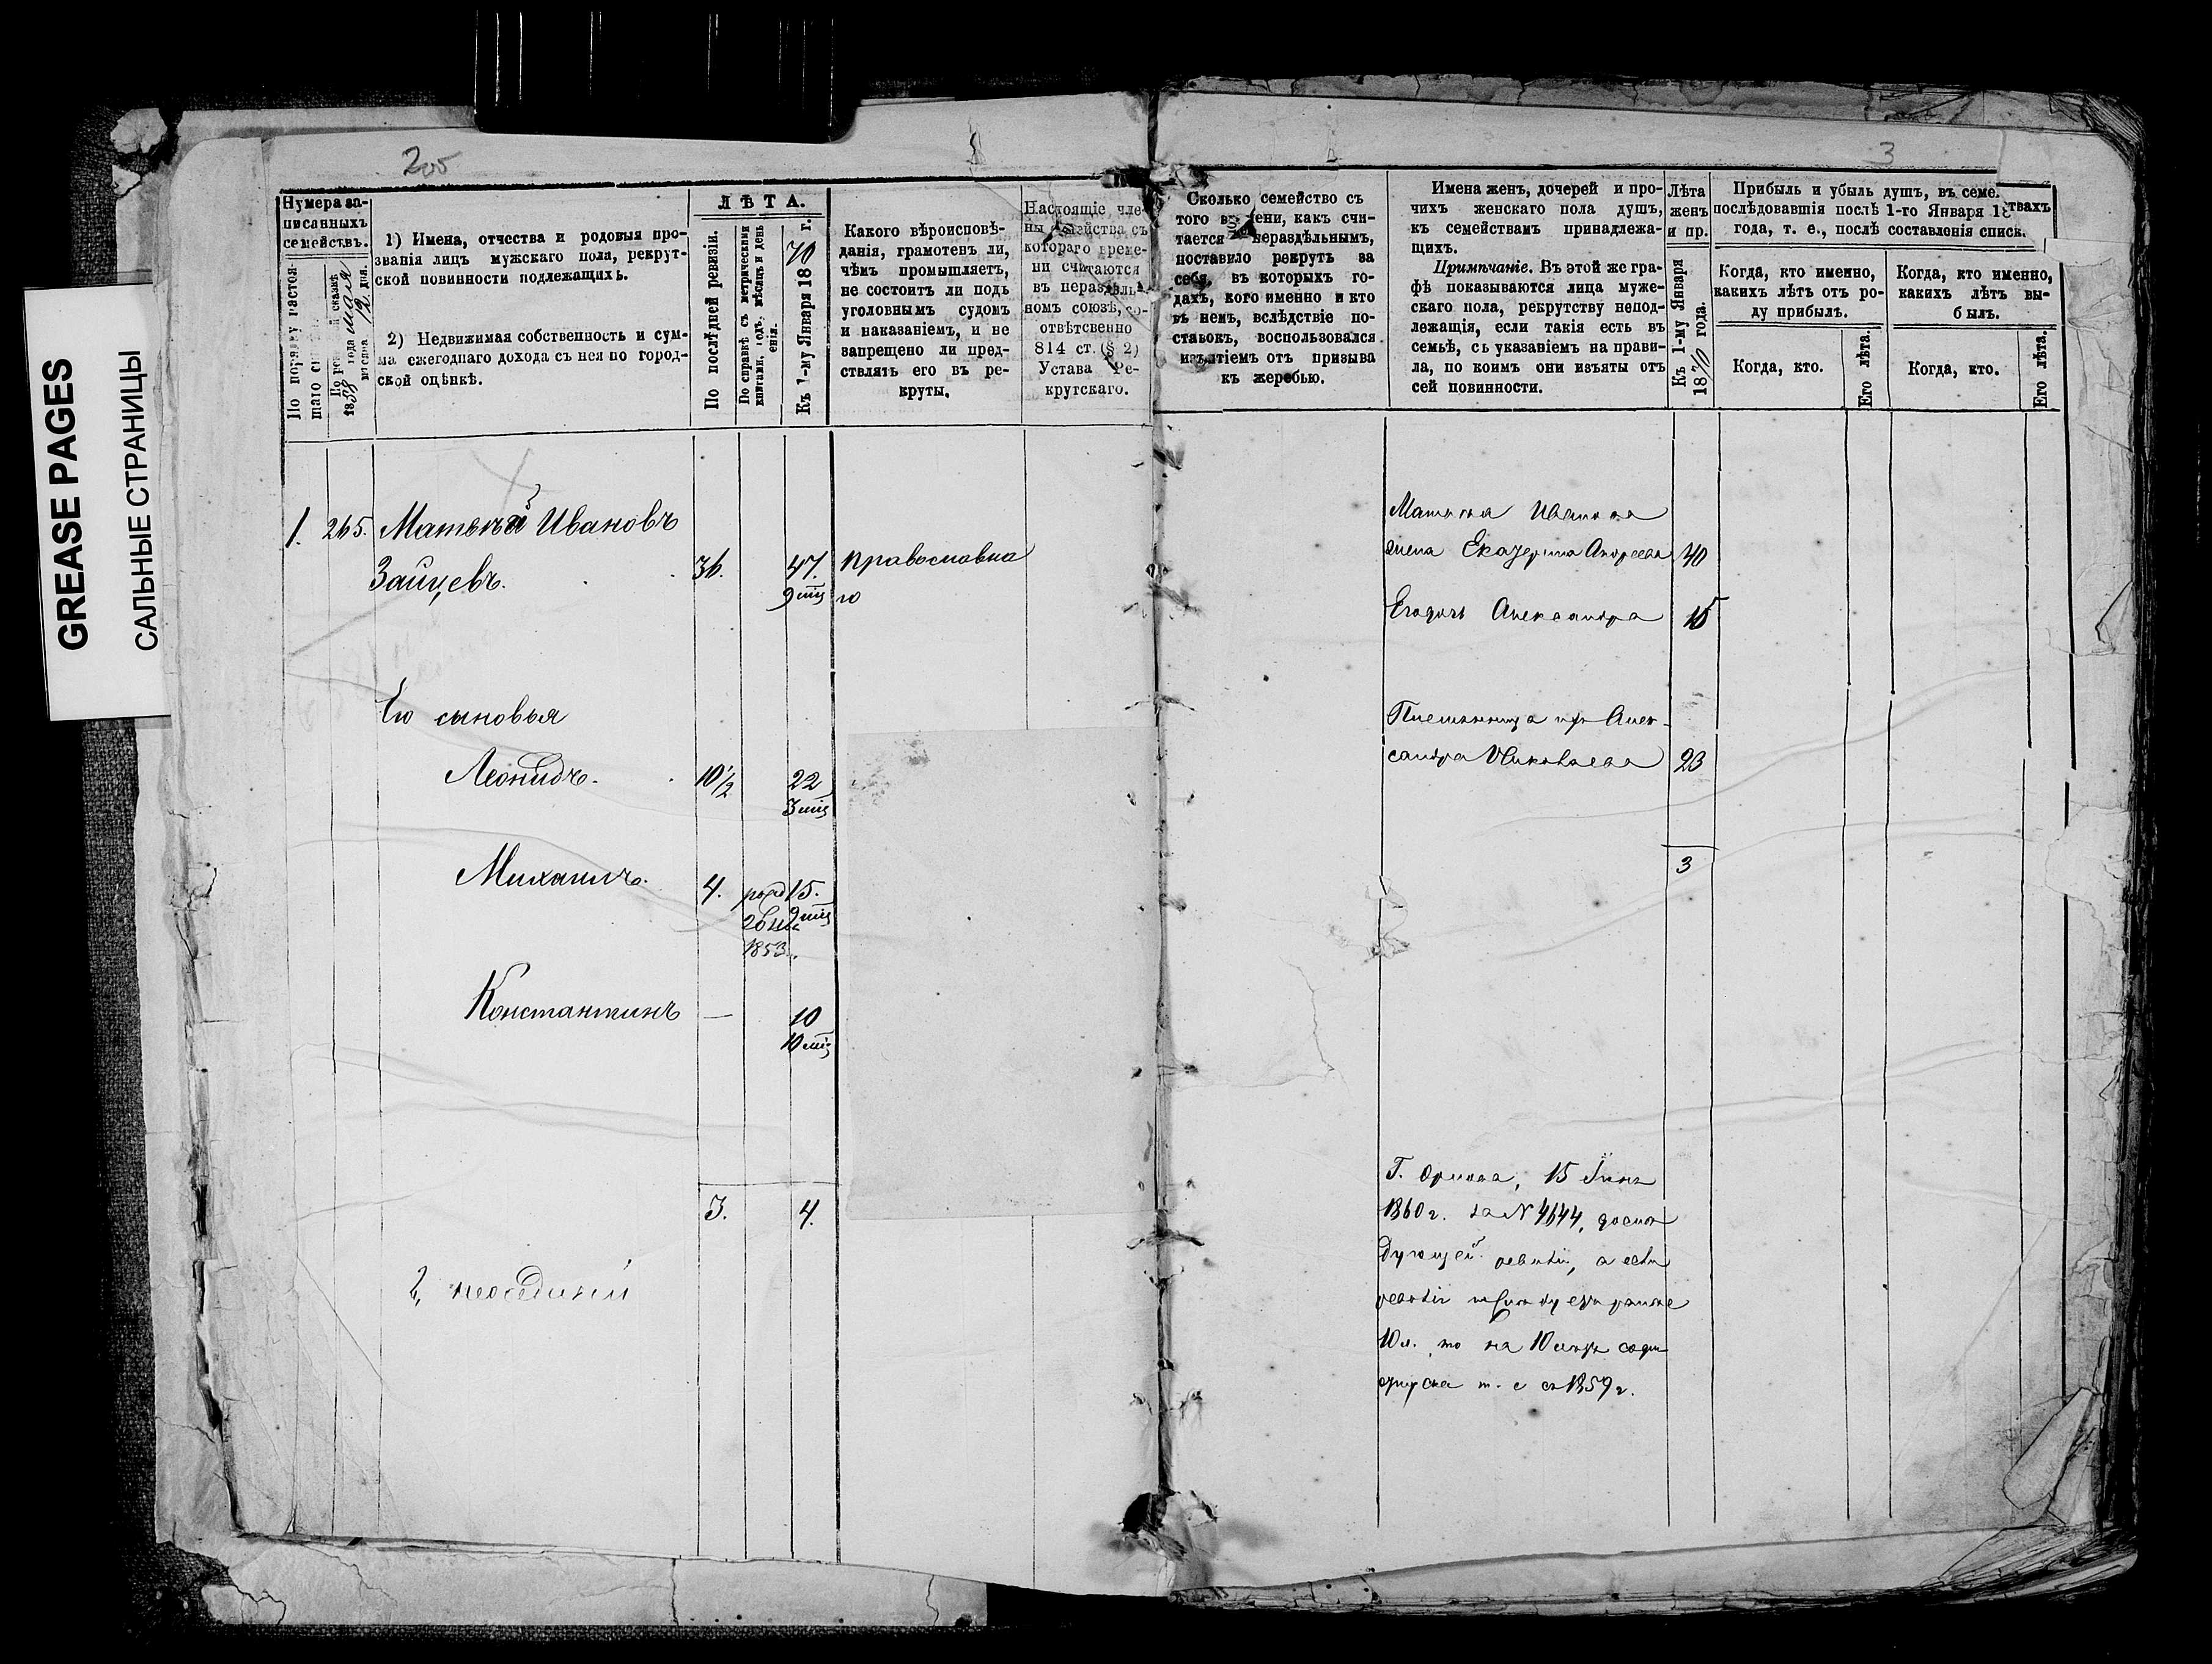 GREASE PAGES
САЛЬНЫЕ СТРАНИЦЫ
205
3
Нумера за-
писанныхъ
семействъ.
По порядку настоя-
щаго
сказкѣ
1858 года мая
12 дня.
1) Имена, отчества и родовыя про-
званія лицъ мужскаго пола, рекрут-
ской повинности подлежащихъ.
2) Недвижимая собственность и сум-
ма ежегоднаго дохода съ нея по город-
ской оцѣнкѣ.
ЛѢТА.
По послѣдней ревизіи.
По справкѣ съ метрическими
книгами, годъ, мѣсяцъ и день
енія.
Къ 1-му Января 1870 г.
Какого вѣроисповѣ-
данія, грамотенъ ли,
чѣмъ промышляетъ,
не состоитъ ли подъ
уголовнымъ судомъ
и наказаніемъ, и не
запрещено ли пред-
ставлять его въ ре-
круты.
Настоящіе чле-
ны семейства съ
котораго време-
ни считаются
въ нераздѣль-
номъ союзѣ, со-
отвѣтсвенно
814 ст. (§ 2)
Устава Ре-
крутскаго.
Сколько семейство съ
того времени, какъ счи-
тается нераздѣльнымъ,
поставило рекрутъ за
себя, въ которыхъ го-
дахъ, кого именно и кто
въ немъ, вслѣдствіе по-
ставокъ, воспользовался
изъятіемъ отъ призыва
къ жеребью.
Имена женъ, дочерей и про-
чихъ женскаго пола душъ,
къ семействамъ принадлежа-
щихъ.
Примѣчаніе. Въ этой же гра-
фѣ показываются лица муже-
скаго пола, рекрутству непод-
лежащія, если такія есть въ
семьѣ, съ указаніемъ на прави-
ла, по коимъ они изъяты отъ
сей повинности.
Лѣта
женъ
и пр.
Къ 1-му Января
1870 года.
Прибыль и убыль душъ, въ семе.
ствахъ
послѣдовавшія послѣ 1-го Января 18
года, т. е., послѣ составленія списк.
Когда, кто именно,
какихъ лѣтъ отъ ро-
ду прибылъ.
Когда, кто.
Его лѣта.
Когда, кто именно,
какихъ лѣтъ вы-
былъ.
Когда, кто.
Его лѣта.
1. 265. Матвѣй Ивановъ
Зайцевъ. 36. 47. православна
9 мц го
Его сыновья
Леонидъ. 10½ 22
3 мц
Михаилъ. 4. 15.
9 мц
1853
Константинъ — 10
10 мц
3. 4.
2,
Матвѣя Иванова
жена Екатерина Андреева 40
Его дочь Александра 15
Племянница его Алек-
сандра Николаева 23
3
15
1860 г. за N 4644,
дующей ревизіи, а если
ревизіи
10 л. то на 10
т. е съ 1859 г.